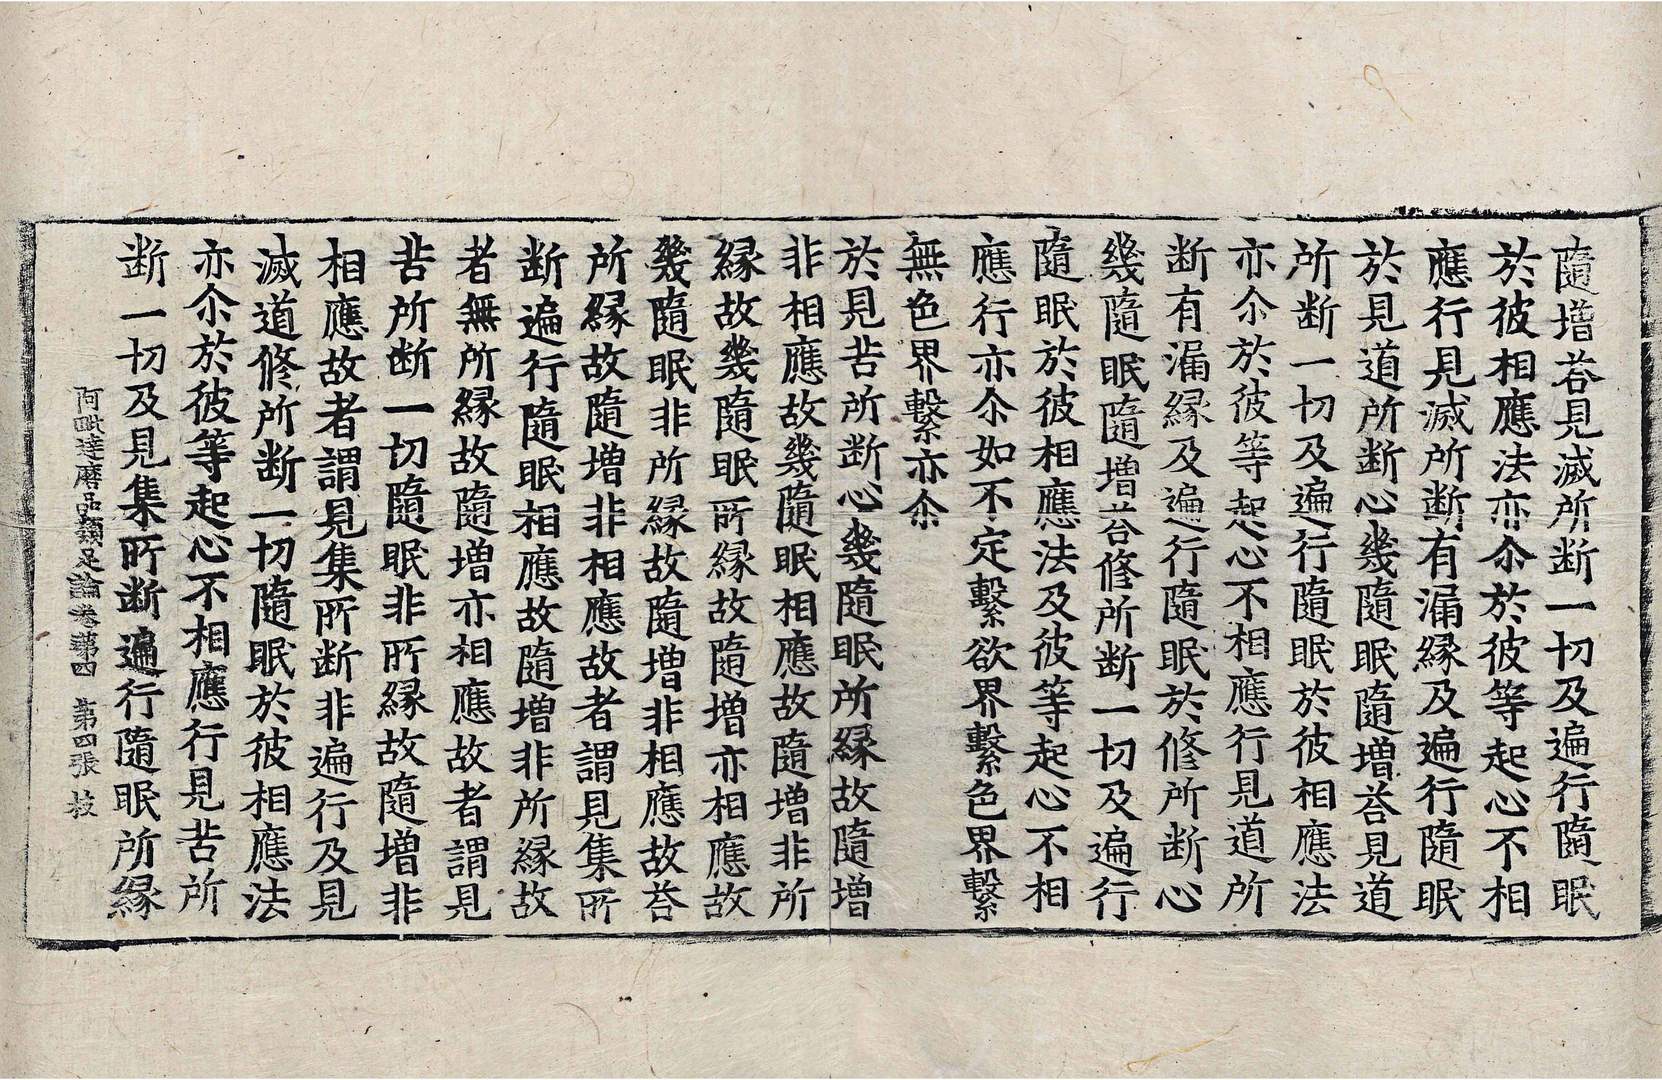 隨增荅見滅所断一切及遍行隨眠
於彼相應法亦尒於彼等起心不相
應行見滅所断有漏緣及遍行隨眠
於見道所断心幾隨眠隨增荅見道
所断一切及遍行隨眠於彼相應法
亦尒於彼等起心不相應行見道所
断有漏緣及遍行隨眠於修所断心
幾隨眠隨增荅修所断一切及遍行
隨眠於彼相應法及彼等起心不相
應行亦尒如不定繫欲界繫色界繫
無色界繫亦尒
於見苦所断心幾隨眠所緣故隨增
非相應故幾隨眠相應故隨增非所
緣故幾隨眠所緣故隨增亦相應故
幾隨眠非所緣故隨增非相應故荅
所緣故隨增非相應故者謂見集所
断遍行隨眠相應故隨增非所緣故
者無所緣故隨增亦相應故者謂見
苦所断一切隨眠非所緣故隨增非
相應故者謂見集所断非遍行及見
滅道修所断一切隨眠於彼相應法
亦尒於彼等起心不相應行見苦所
断一切及見集所断遍行隨眠所緣
阿毗達磨品類足論卷第四 第四張 枝